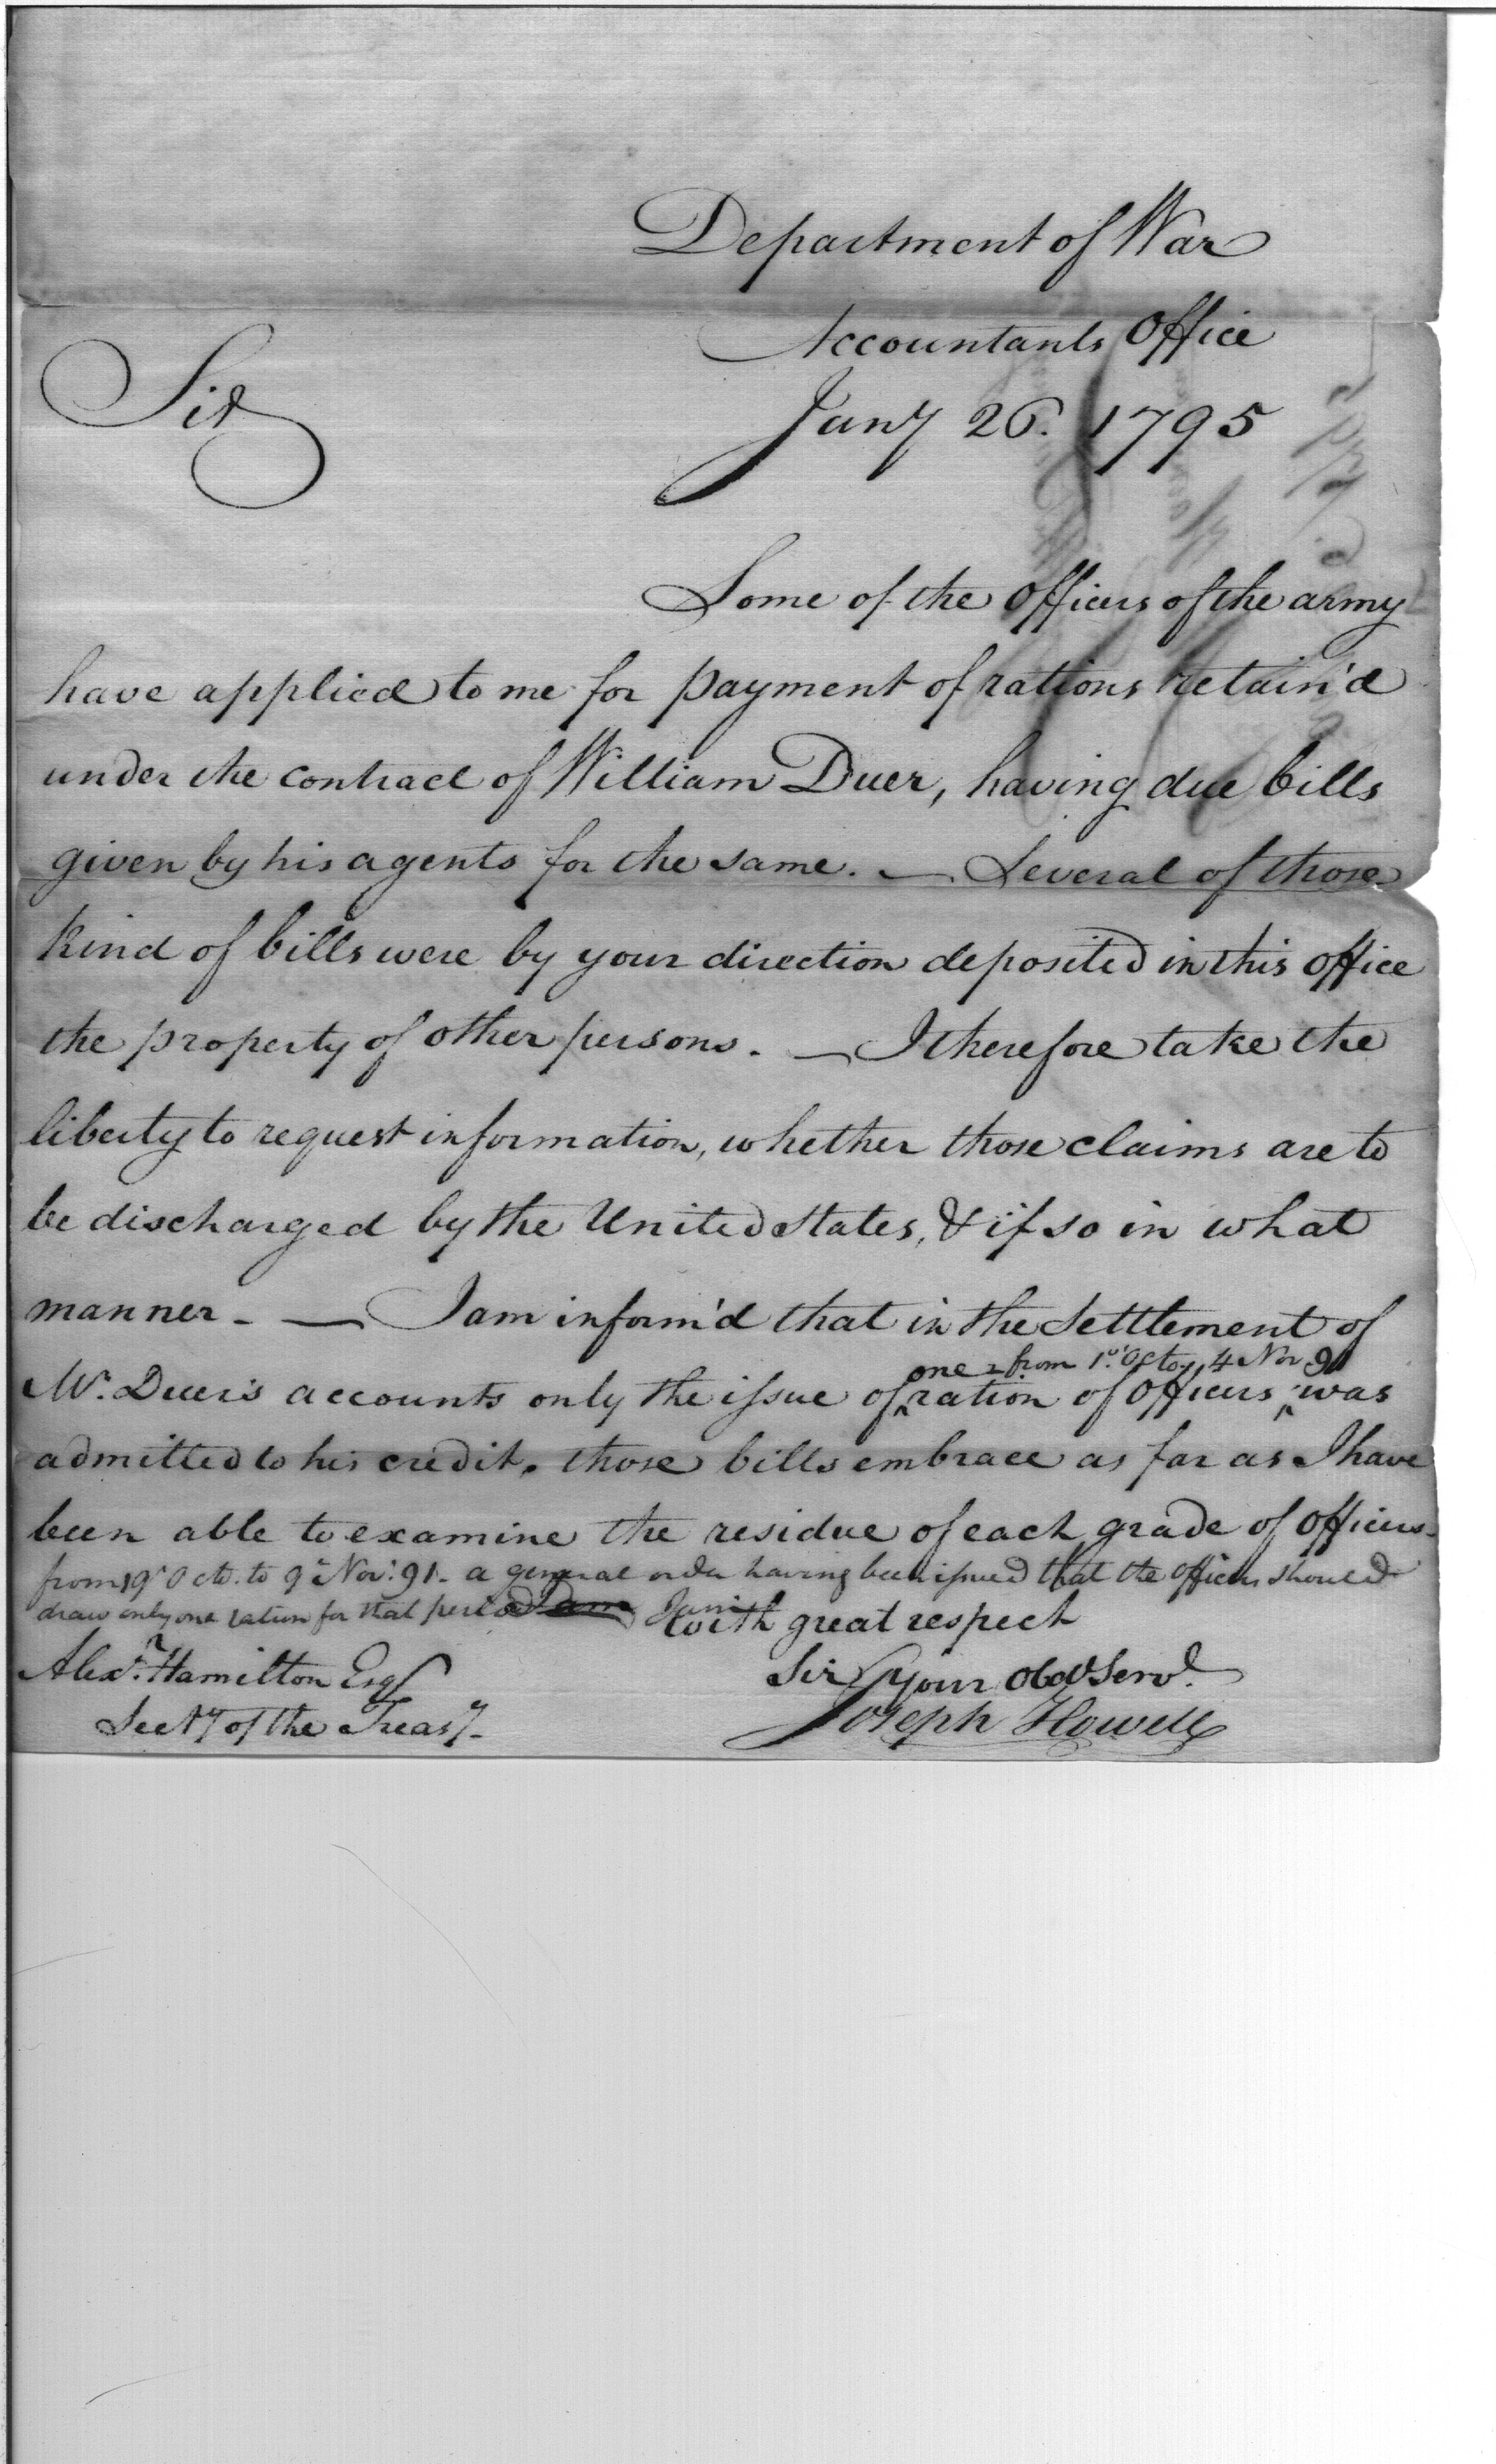 Department of War
Accountants Office
Sir
Jany 26. 1795
Some of the Officers of the army
have applied to me for payment of rations retain'd
under the contract of William Duer, having due bills
given by his agents for the same. — Several of those
kind of bills were by your direction deposited in this office
the property of other persons. — I therefore take the
liberty to request information, whether those claims are to
be discharged by the United States, & if so in what
manner - — I am inform'd that in the Settlement of
one from 1st Octo 4 Nov 91
Mr. Duer's accounts only the issue of ration of Officers was
admitted to his credit. those bills embrace as far as I have
been able to examine the residue of each grade of Officers
from 19 Octo. to 9th Nov: 91 - a general order having been issued that the officers should
draw only one ration for that period I am
with great respect
Alexr. Hamilton Esqr
Sir your Obdt Servt.
Secty of the Treasy.
Joseph Howell